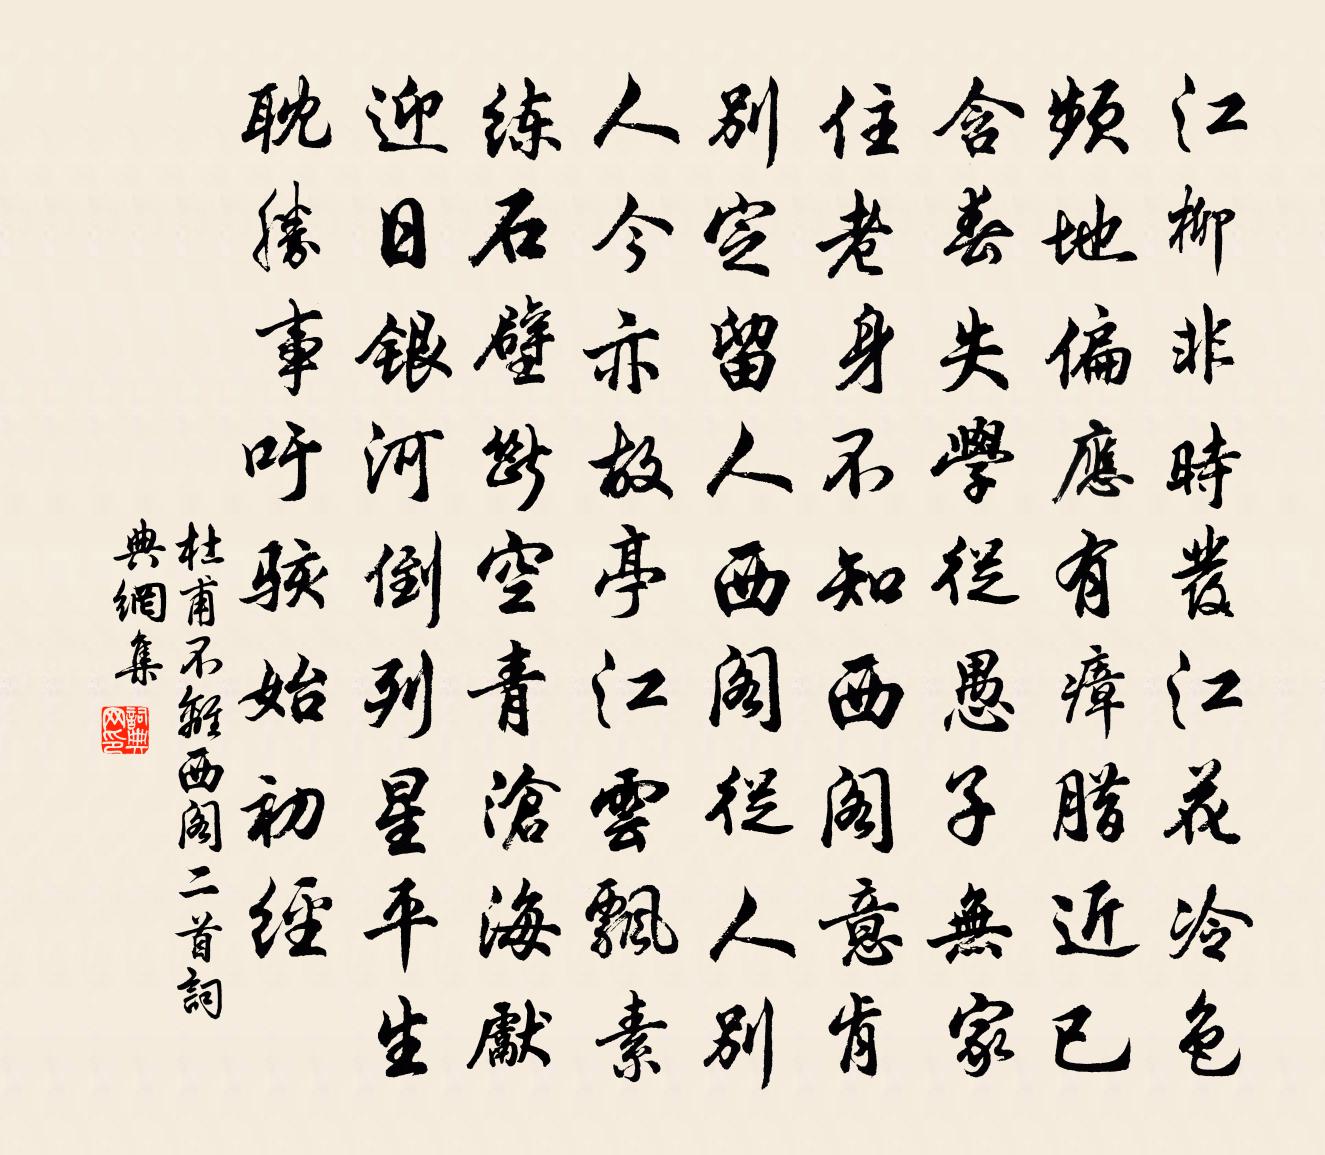 江柳非時發江花冷色
頻地偏應有瘴腊近已
含春失學從愚子無家
住老身不知西阁意肯
別定留人西阁從人別
人今亦故亭江雲飄素
练石壁斷空青滄海獻
迎日銀河倒列星平生
耽勝事吁駭始初經
杜甫不離西阁二首詞
典網集
詞典网印